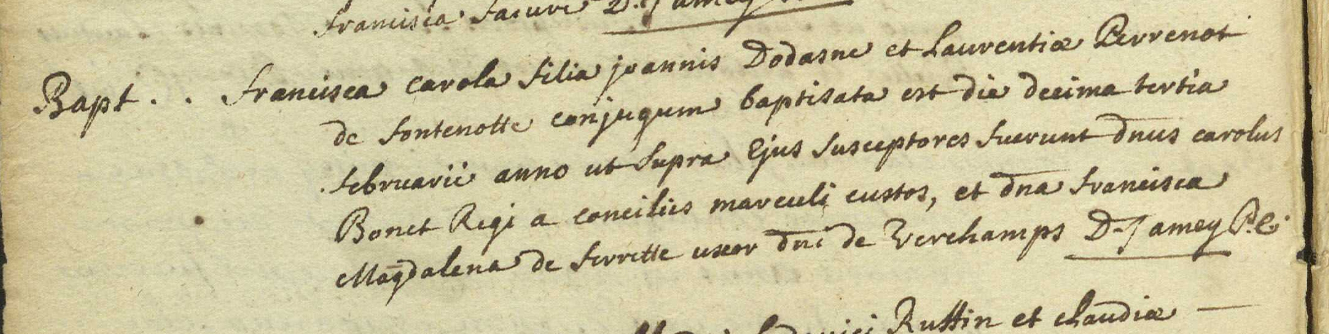 Francisca Faivre D. Jamey
Bapt . . Francisca carola filia joannis Dodasne et Laurentiæ Perrenot
de fontenotte conjugum baptisata est die decima tertia
februarii anno ut supra Ejus susceptores fuerunt dnus carolus
Bonet Regi a conciliis marculi custos, et dna francisca
Magdalena de ferrette uxor dni de Verchamps D. Jamey P. C.
Ruffin et claudiæ